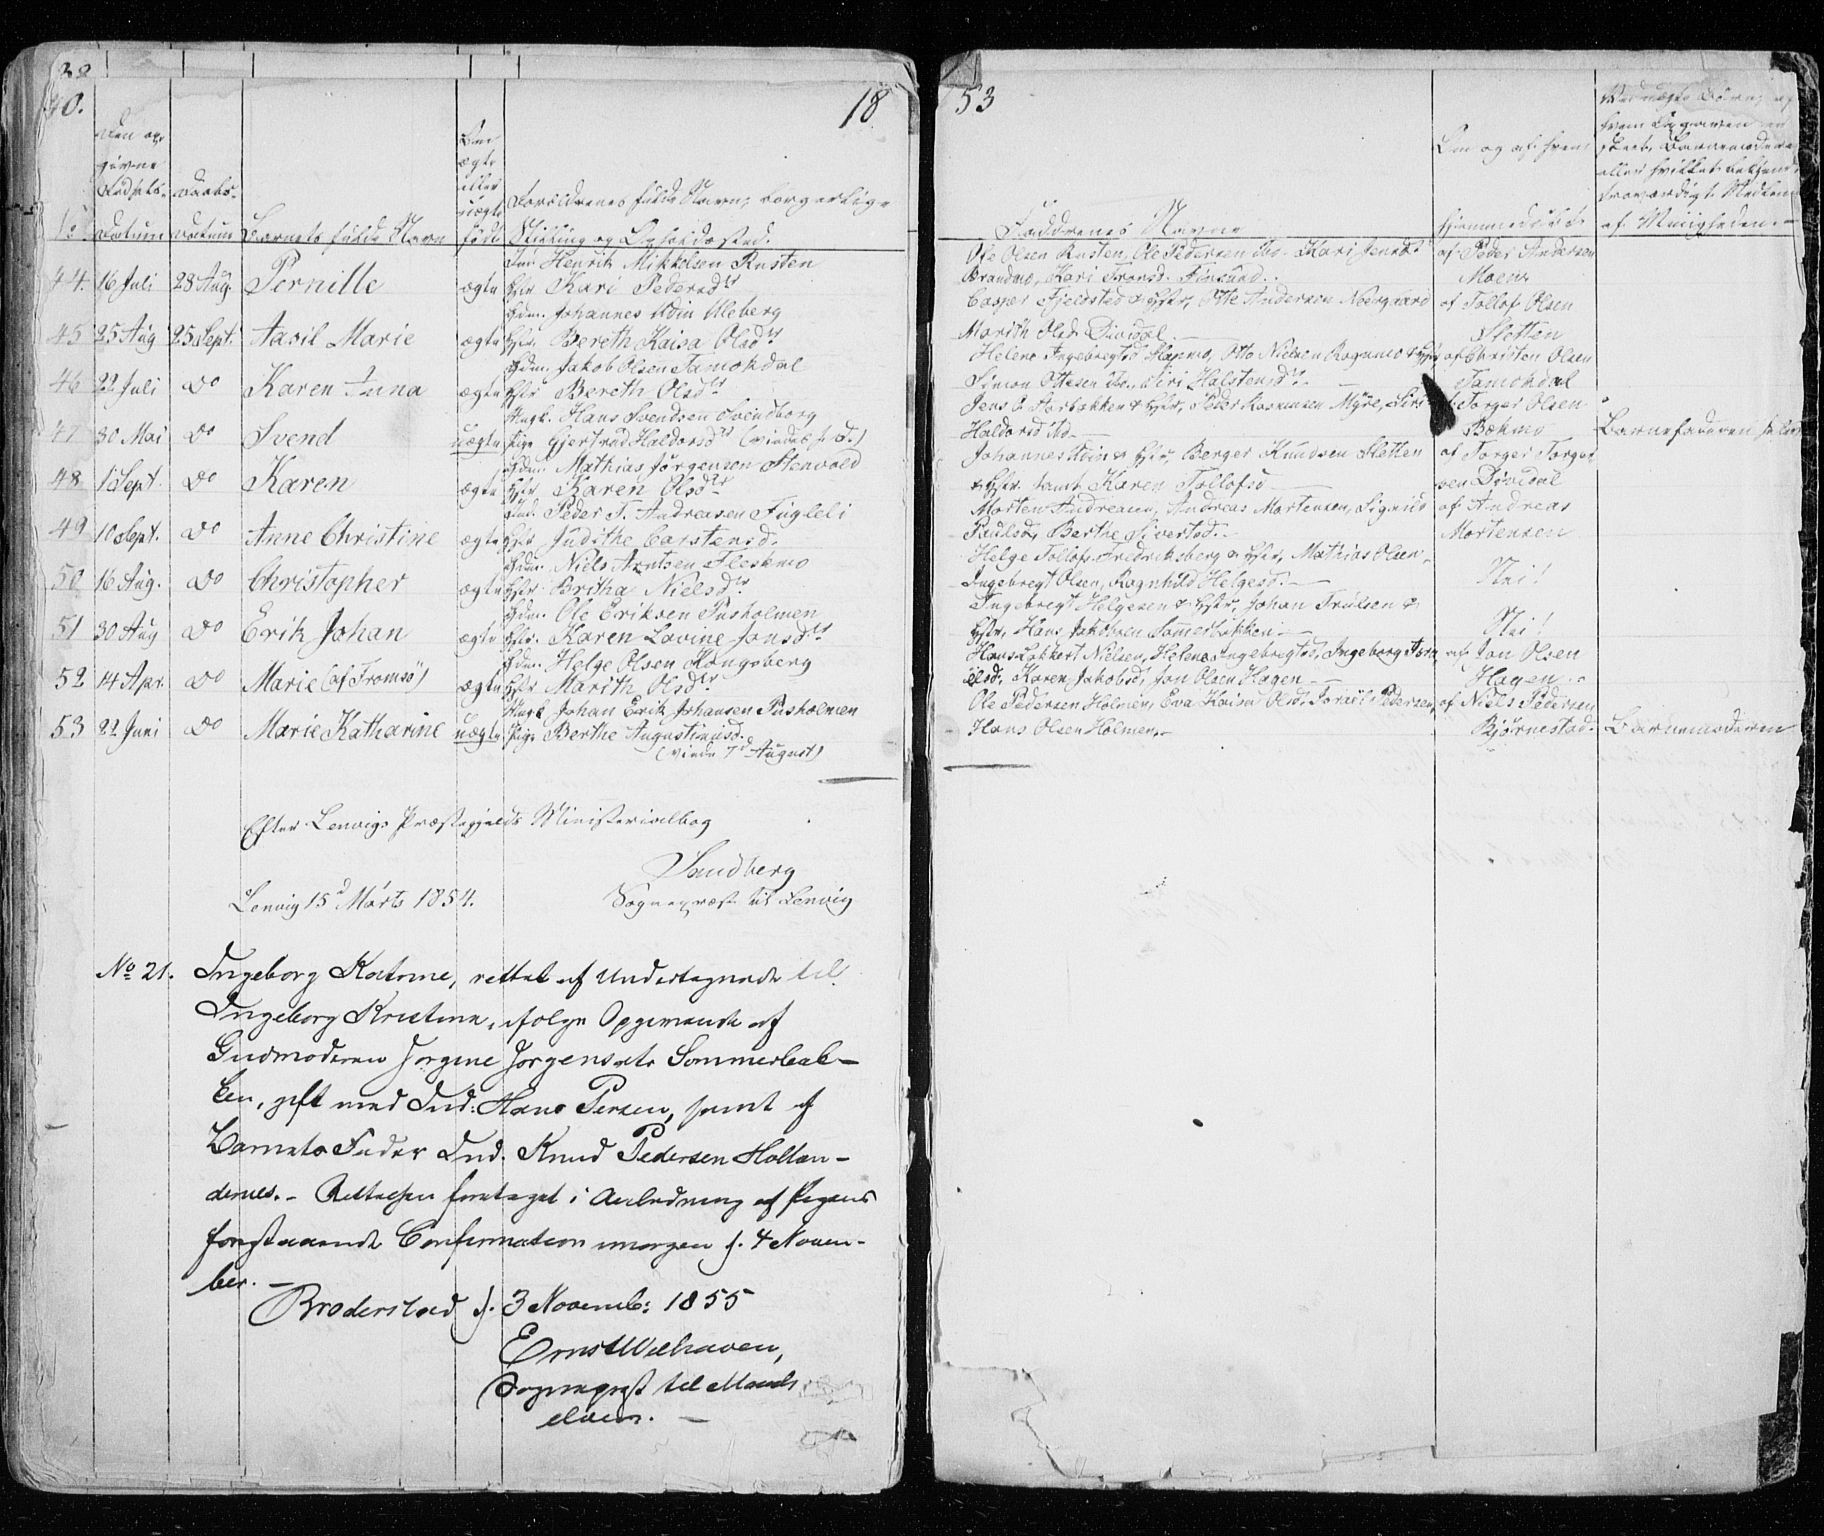 40.
18
53
Den op-
givne
Fødsels-
Datum
Daabs-
Datum
Barnets fulde Navn
Om
ægte
eller
uægte
født
Forældrenes fulde Navn, borgerlige
Stilling og Opholdssted.
Faddrenes Navne
Om og af hvem
hjemmedøbt.
Ved uægte Børn, af
hvem Opgaven er
skeet, Barnemoderen
eller hvilket bekjendt
troværdigt Medlem
af Menigheden.
44. 16 Juli 28 Aug. Pernille ægte Ind. Henrik Mikkelsen Rusten
Hstr Kari Pedersdtr
Ole Olsen Rusten, Ole Pedersen Ibd. Kari Jensdr
Brandmo, Kari Tronsd. Finsund.
af Peder Andersen
Moen
45 25 Aug 25 Sept. Aasil Marie ægte Gdm. Johannes Udin Uleberg
Hstr. Bereth Kaisa Olsdtr
Casper Fjeldsted & Hstr, Otte Andersen Neergaard
Marith Olsd. Dividal.
af Tollof Olsen
Sletten
46 22 Juli Do Karen Anna ægte Gdm. Jakob Olsen Tamokdal
Hstr Bereth Olsdtr
Helene Ingebregtsd Hapmo, Otto Nielsen Rognmo & Hstr,
Simon Ottesen Ibd., Siri Halstensdr
af Christen Olsen
Tamokdal
47 30 Mai Do Svend uægte Ungk. Hans Svendsen Svendborg
Pige Gjertrud Haldorsdtr
Jens O Aarbakken & Hstr, Peder Rasmussen Myre, Siri
Haldorsd Ibd
af Torger Olsen
Bækmo
Barnefaderen selv
48 1 Sept. Do Karen ægte Gdm. Mathias Jörgensen Stenvold
Hstr Karen Olsdtr
Johannes Udin & Hstr, Berger Knudsen Sletten
& Hstr. samt Karen Tollofsd
af Torger Torger
sen Dividal
49 10 Sept. Do Anne Christine ægte Ind. Peder T. Andreasen Fugleli
Hstr Judithe Carstensd.
Morten Andreasen, Andreas Mortensen, Sigrid
Paulsd, Berthe Siversd.
af Andreas
Mortensen
50 16 Aug. Do Christopher ægte Gdm. Niels Arntsen Fleskmo
Hstr. Britha Nielsdtr
Helge Tollofs. Fredriksberg & Hstr, Mathias Olsen
Ingebregt Olsen, Ragnhild Helgesd.
Nei!
51 30 Aug Do Erik Johan ægte Gdm. Ole Eriksen Pusholmen
Hstr. Karen Lovine Jonsdtr
Ingebregt Helgesen & Hstr, Johan Trulsen &
Hstr, Hans Jakobsen Sommerbakken
Nei!
52 14 Apr. Do Marie (af Tromsö) ægte Gdm. Helge Olsen Kongsberg
Hstr Marith Olsdtr
Hans Lokkert Nielsen, Helene Ingebregtsd, Ingeborg Isra
elsd, Karen Jakobsd, Jon Olsen Hagen
af Jon Olsen
Hagen
53 22 Juni Do Marie Katharine uægte Ungk Johan Erik Johansen Pusholmen
Pige Berthe Augustinusd.
(viede 7d August)
Ole Pedersen Holmen, Eva Kaisa Olsd, Israel Pedersen,
Hans Olsen Holmen.
af Niels Pedersen
Bjørnestad
Barnemoderen
Efter Lenvigs Præstegjelds Ministerialbog
Sandberg
Lenvig 15d Marts 1854.
Sognepræst til Lenvig
No 21. Ingeborg Katrine, rettet af Undertegnede til
Ingeborg Kristine, ifølge Opgivende af
Gudmoderen Jorgine Jorgensdtr Sommerbak-
ken, gift med Ind: Hans Persen, samt af
Barnets Fader Ind. Knud Pedersen Hollæn-
dernes. - Rettelsen foretaget i Anledning af Pigens
forestaaende Confirmation imorgen d. 4 Novem-
ber. -
Broderstad d. 3 Novemb: 1855
Ernst Welhaven,
Sognepræst til Maals
elven.